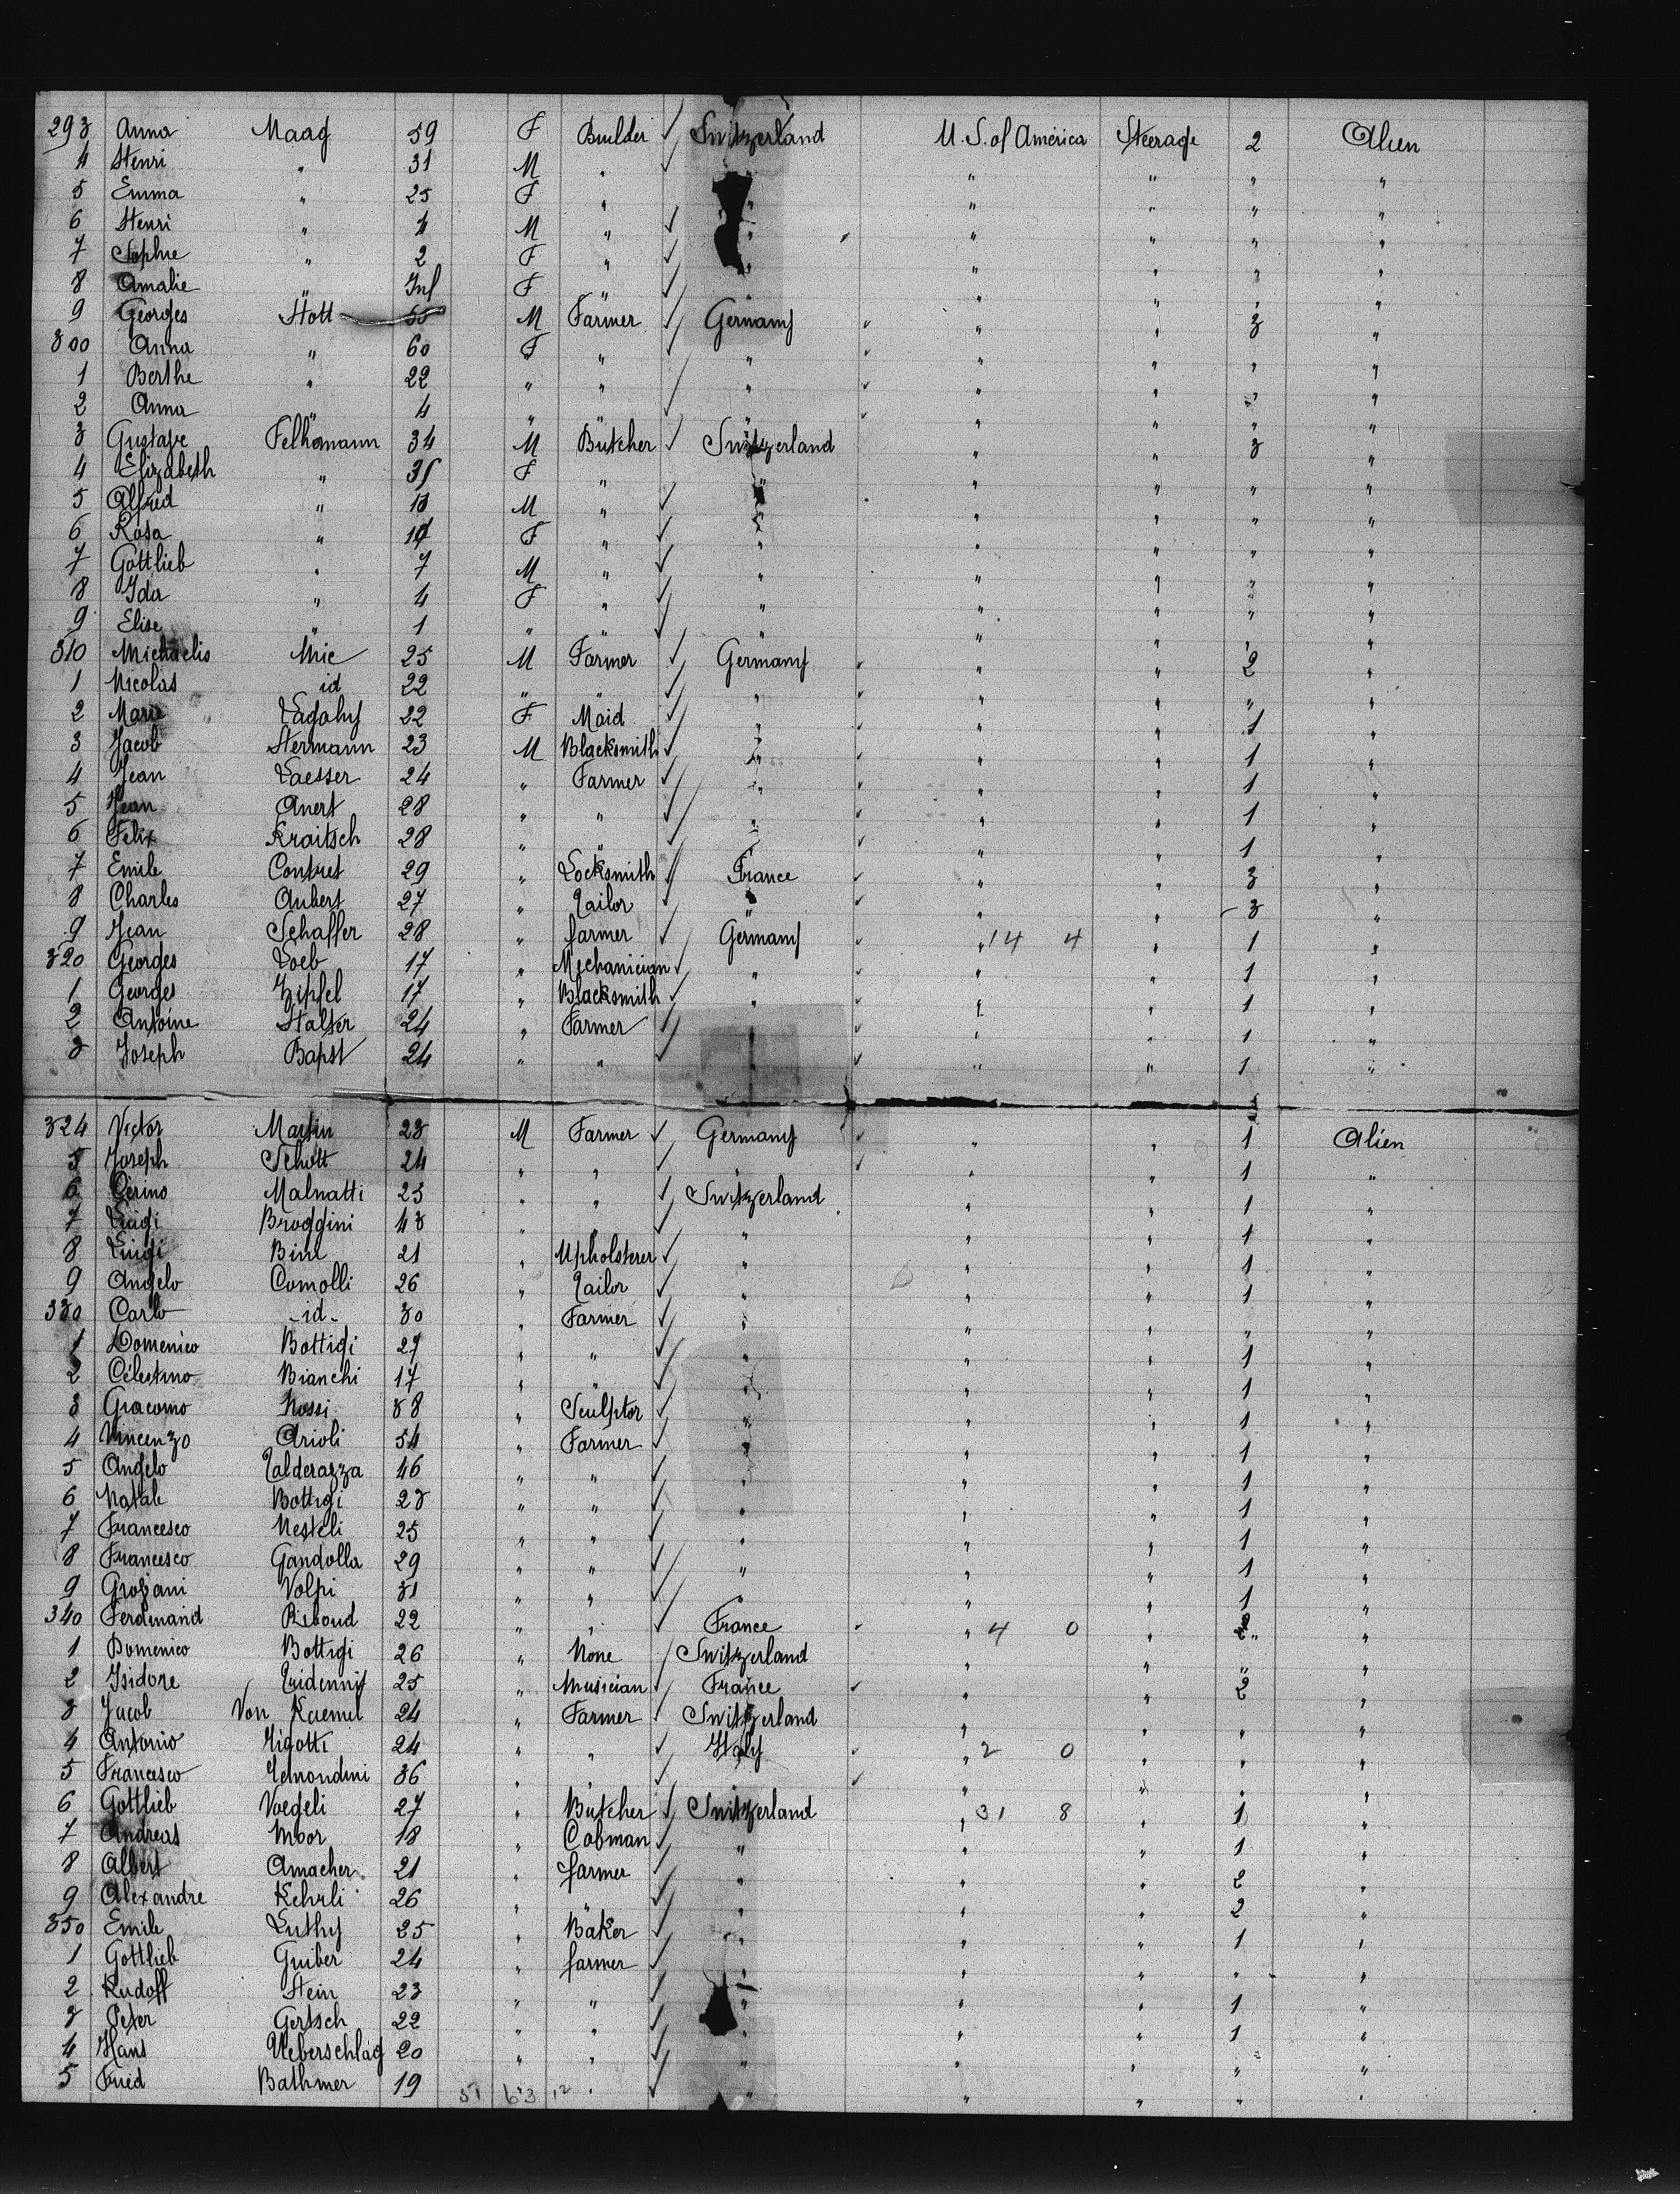 293 Anna Maag 59 F Builder ✓ Switzerland U.S. of America Steerage 2 Alien
4 Henri " 31 M " ✓ " " " " "
5 Emma " 25 F " " " " " "
6 Henri " 4 M " ✓ " " " " "
7 Sophie " 2 F " ✓ " " " " "
8 Amalie " Inf F " ✓ " " " " "
9 Georges Hott 55 M Farmer ✓ Germany " " 3 "
300 Anna " 60 F " ✓ " " " " "
1 Berthe " 22 " " ✓ " " " " "
2 Anna " 4 " " ✓ " " " " "
3 Gustave Felhmann 34 M Butcher ✓ Switzerland " " 3 "
4 Elizabeth " 35 F " " " " " "
5 Alfred " M " ✓ " " " " "
6 Rosa " F " ✓ " " " " "
7 Gottlieb " 7 M " ✓ " " " " "
8 Ida " 4 F " ✓ " " " " "
9 Elise " 1 " " ✓ " " " " "
310 Michaelis Mie 25 M Farmer ✓ Germany " " 2 "
1 Nicolas id 22 " " ✓ " " " " "
2 Marie 22 F Maid ✓ " " " 1 "
3 Jacob Hermann 23 M Blacksmith ✓ " " " 1 "
4 Jean Laesser 24 " Farmer ✓ " " " 1 "
5 Jean Anert 28 " " ✓ " " " 1 "
6 Felix Kraitsch 28 " " ✓ " " " 1 "
7 Emile Contret 29 " Locksmith ✓ France " " 3 "
8 Charles Aubert 27 " Tailor ✓ " " " 3 "
9 Jean Schaffer 28 " farmer ✓ Germany " 14 4 " 1 "
320 Georges Loeb 17 " Mechanician ✓ " " " 1 "
1 Georges Zipfel 17 " Blacksmith ✓ " " " 1 "
2 Antoine Halter 24 " Farmer ✓ " " 1 "
3 Joseph Bapst 24 " " ✓ " " 1 "
324 Victor Martin 23 M Farmer ✓ Germany " " 1 Alien
5 Joseph Schott 24 " " ✓ " " " 1 "
6 Cerino Malnatti 23 " " ✓ Switzerland " " 1 "
7 Luigi Broggini 43 " " ✓ " " " 1 "
8 Luigi Bini 21 " Upholsterer ✓ " " " 1 "
9 Angelo Comolli 26 " Tailor ✓ " " " 1 "
330 Carlo id 30 " Farmer ✓ " " " " "
1 Domenico Bottigi 27 " " ✓ " " " 1 "
2 Célestino Bianchi 17 " " ✓ " " " 1 "
3 Giacomo Rossi 38 " Sculptor ✓ " " " 1 "
4 Vincenzo Arioli 54 " Farmer ✓ " " " 1 "
5 Angelo Talderazza 46 " " ✓ " " " 1 "
6 Natale Bottigi 23 " " ✓ " " " 1 "
7 Francesco Nesteli 25 " " ✓ " " " 1 "
8 Francesco Gandolla 29 " " ✓ " " " 1 "
9 Volpi 31 " " ✓ " " " 1 "
340 Ferdinand Riboud 22 " " ✓ France " 4 0 " "
1 Domenico Bottigi 26 " None Switzerland " " " "
2 Isidore 25 " Musician ✓ France " " 2 "
3 Jacob Von Kaenel 24 " Farmer ✓ Switzerland " " " "
4 Antonio Zigotti 24 " " ✓ Italy " 2 0 " " "
5 Francesco Zemondini 36 " " ✓ " " " "
6 Gottlieb Voegeli 27 " Butcher ✓ Switzerland " 31 8 " 1 "
7 Andreas Moor 18 " Cabman ✓ " " " 1 "
8 Albert Amacher 21 " farmer ✓ " " " 2 "
9 Alexandre Kehrli 26 " " ✓ " " " 2 "
350 Emile Luthy 25 " Baker ✓ " " " 1 "
1 Gottlieb Gruber 24 " farmer ✓ " " " " "
2 Rudolf Stein 23 " " ✓ " " " 1 "
3 Peter Gertsch 22 " " ✓ " " 1 "
4 Hans Ueberschlag 20 " " ✓ " " " " "
5 Fried Bathmer 19 51 63 12 " ✓ " " " " "